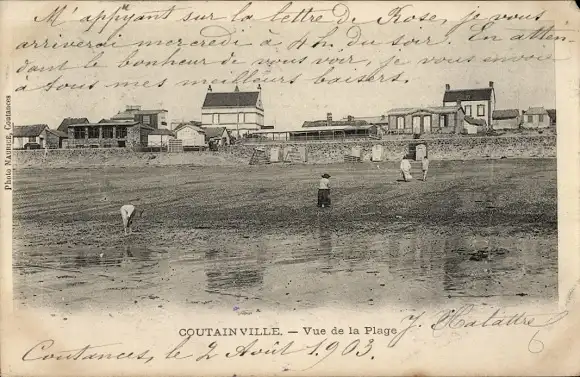 M'appuyant sur la lettre de Rose, je vous
arriverai mercredi à 4h. du soir. En atten-
dant le bonheur de vous voir, je vous envoie
à tous mes meilleurs baisers.
Photo MAURICE, Coutances
COUTAINVILLE. – Vue de la Plage
J. Halattre
Coutances, le 2 Août 1903.